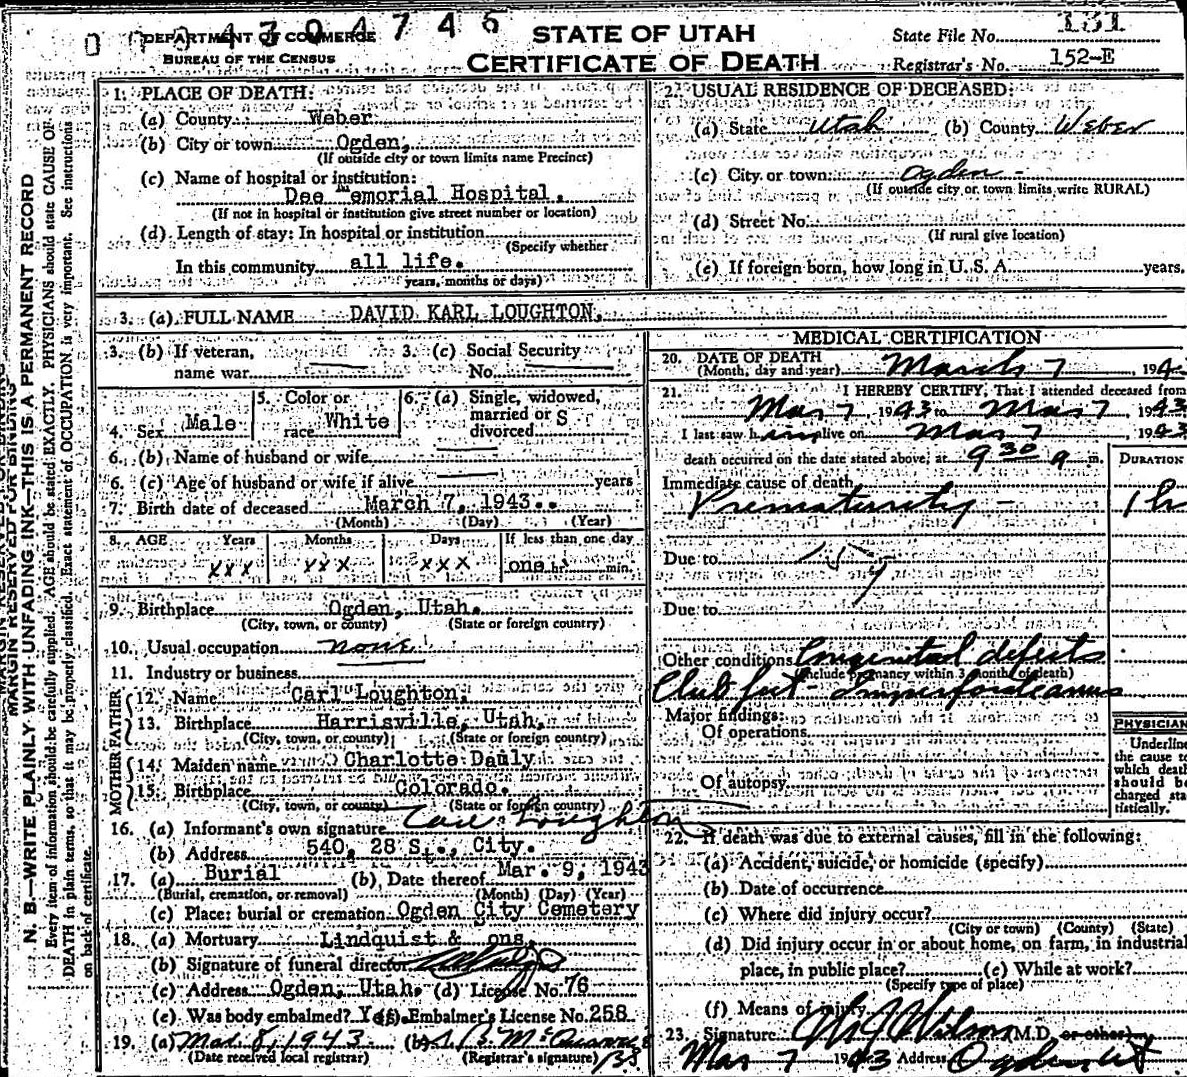 0 0 0 4 3 0 4 7 4 5
DEPARTMENT OF COMMERCE
BUREAU OF THE CENSUS
STATE OF UTAH
CERTIFICATE OF DEATH
State File No. 131
Registrar's No. 152-E
N. B.—WRITE PLAINLY WITH UNFADING INK—THIS IS A PERMANENT RECORD
MARGIN RESERVED FOR BINDING
Every item of information should be carefully supplied. AGE should be stated EXACTLY. PHYSICIANS should state CAUSE OF
DEATH in plain terms, so that it may be properly classified. Exact statement of OCCUPATION is very important. See instructions
on back of certificate.
1. PLACE OF DEATH:
(a) County Weber
(b) City or town Ogden,
(If outside city or town limits name Precinct)
(c) Name of hospital or institution:
Dee emorial Hospital.
(If not in hospital or institution give street number or location)
(d) Length of stay: In hospital or institution
(Specify whether
In this community all life.
years, months or days)
2. USUAL RESIDENCE OF DECEASED:
(a) State Utah (b) County Weber
(c) City or town Ogden -
(If outside city or town limits write RURAL)
(d) Street No.
(If rural give location)
(e) If foreign born, how long in U. S. A. years.
3. (a) FULL NAME DAVID KARL LOUGHTON,
3. (b) If veteran, name war
3. (c) Social Security No.
4. Sex Male
5. Color or race White
6. (a) Single, widowed, married or divorced S
6. (b) Name of husband or wife
6. (c) Age of husband or wife if alive years
7. Birth date of deceased March 7, 1943..
(Month) (Day) (Year)
8. AGE Years Months Days If less than one day
xxx xxx xxx one hr. min.
9. Birthplace Ogden, Utah.
(City, town, or county) (State or foreign country)
10. Usual occupation none
11. Industry or business
FATHER
12. Name Carl Loughton,
13. Birthplace Harrisville, Utah.
(City, town, or county) (State or foreign country)
MOTHER
14. Maiden name Charlotte Dauly
15. Birthplace Colorado.
(City, town, or county) (State or foreign country)
16. (a) Informant's own signature Carl Loughton
(b) Address 540, 28 St., City.
17. (a) Burial (b) Date thereof Mar. 9, 1943
(Burial, cremation, or removal) (Month) (Day) (Year)
(c) Place: burial or cremation Ogden City Cemetery
18. (a) Mortuary Lindquist & ons,
(b) Signature of funeral director
(c) Address Ogden, Utah. (d) License No. 76
(e) Was body embalmed? Yes. (f) Embalmer's License No. 258
19. (a) Mar 8, 1943 (b)
(Date received local registrar) (Registrar's signature)
MEDICAL CERTIFICATION
20. DATE OF DEATH
(Month, day and year) March 7 194
21. I HEREBY CERTIFY, That I attended deceased from
Mar 7, 1943 to Mar 7, 1943
I last saw him alive on Mar 7, 1943
death occurred on the date stated above, at 9 30 a m.
DURATION
Immediate cause of death
Prematurity - 1 h
Due to
Due to
Other conditions Congenital defects
(Include pregnancy within 3 months of death)
Club feet - Imperforate anus
Major findings:
Of operations
Of autopsy
PHYSICIAN
Underline
the cause to
which death
should be
charged sta-
tistically.
22. If death was due to external causes, fill in the following:
(a) Accident, suicide, or homicide (specify)
(b) Date of occurrence
(c) Where did injury occur?
(City or town) (County) (State)
(d) Did injury occur in or about home, on farm, in industrial
place, in public place? (e) While at work?
(Specify type of place)
(f) Means of injury
23. Signature Wilson (M.D. or other)
Mar 7 1943 Address Ogden Ut